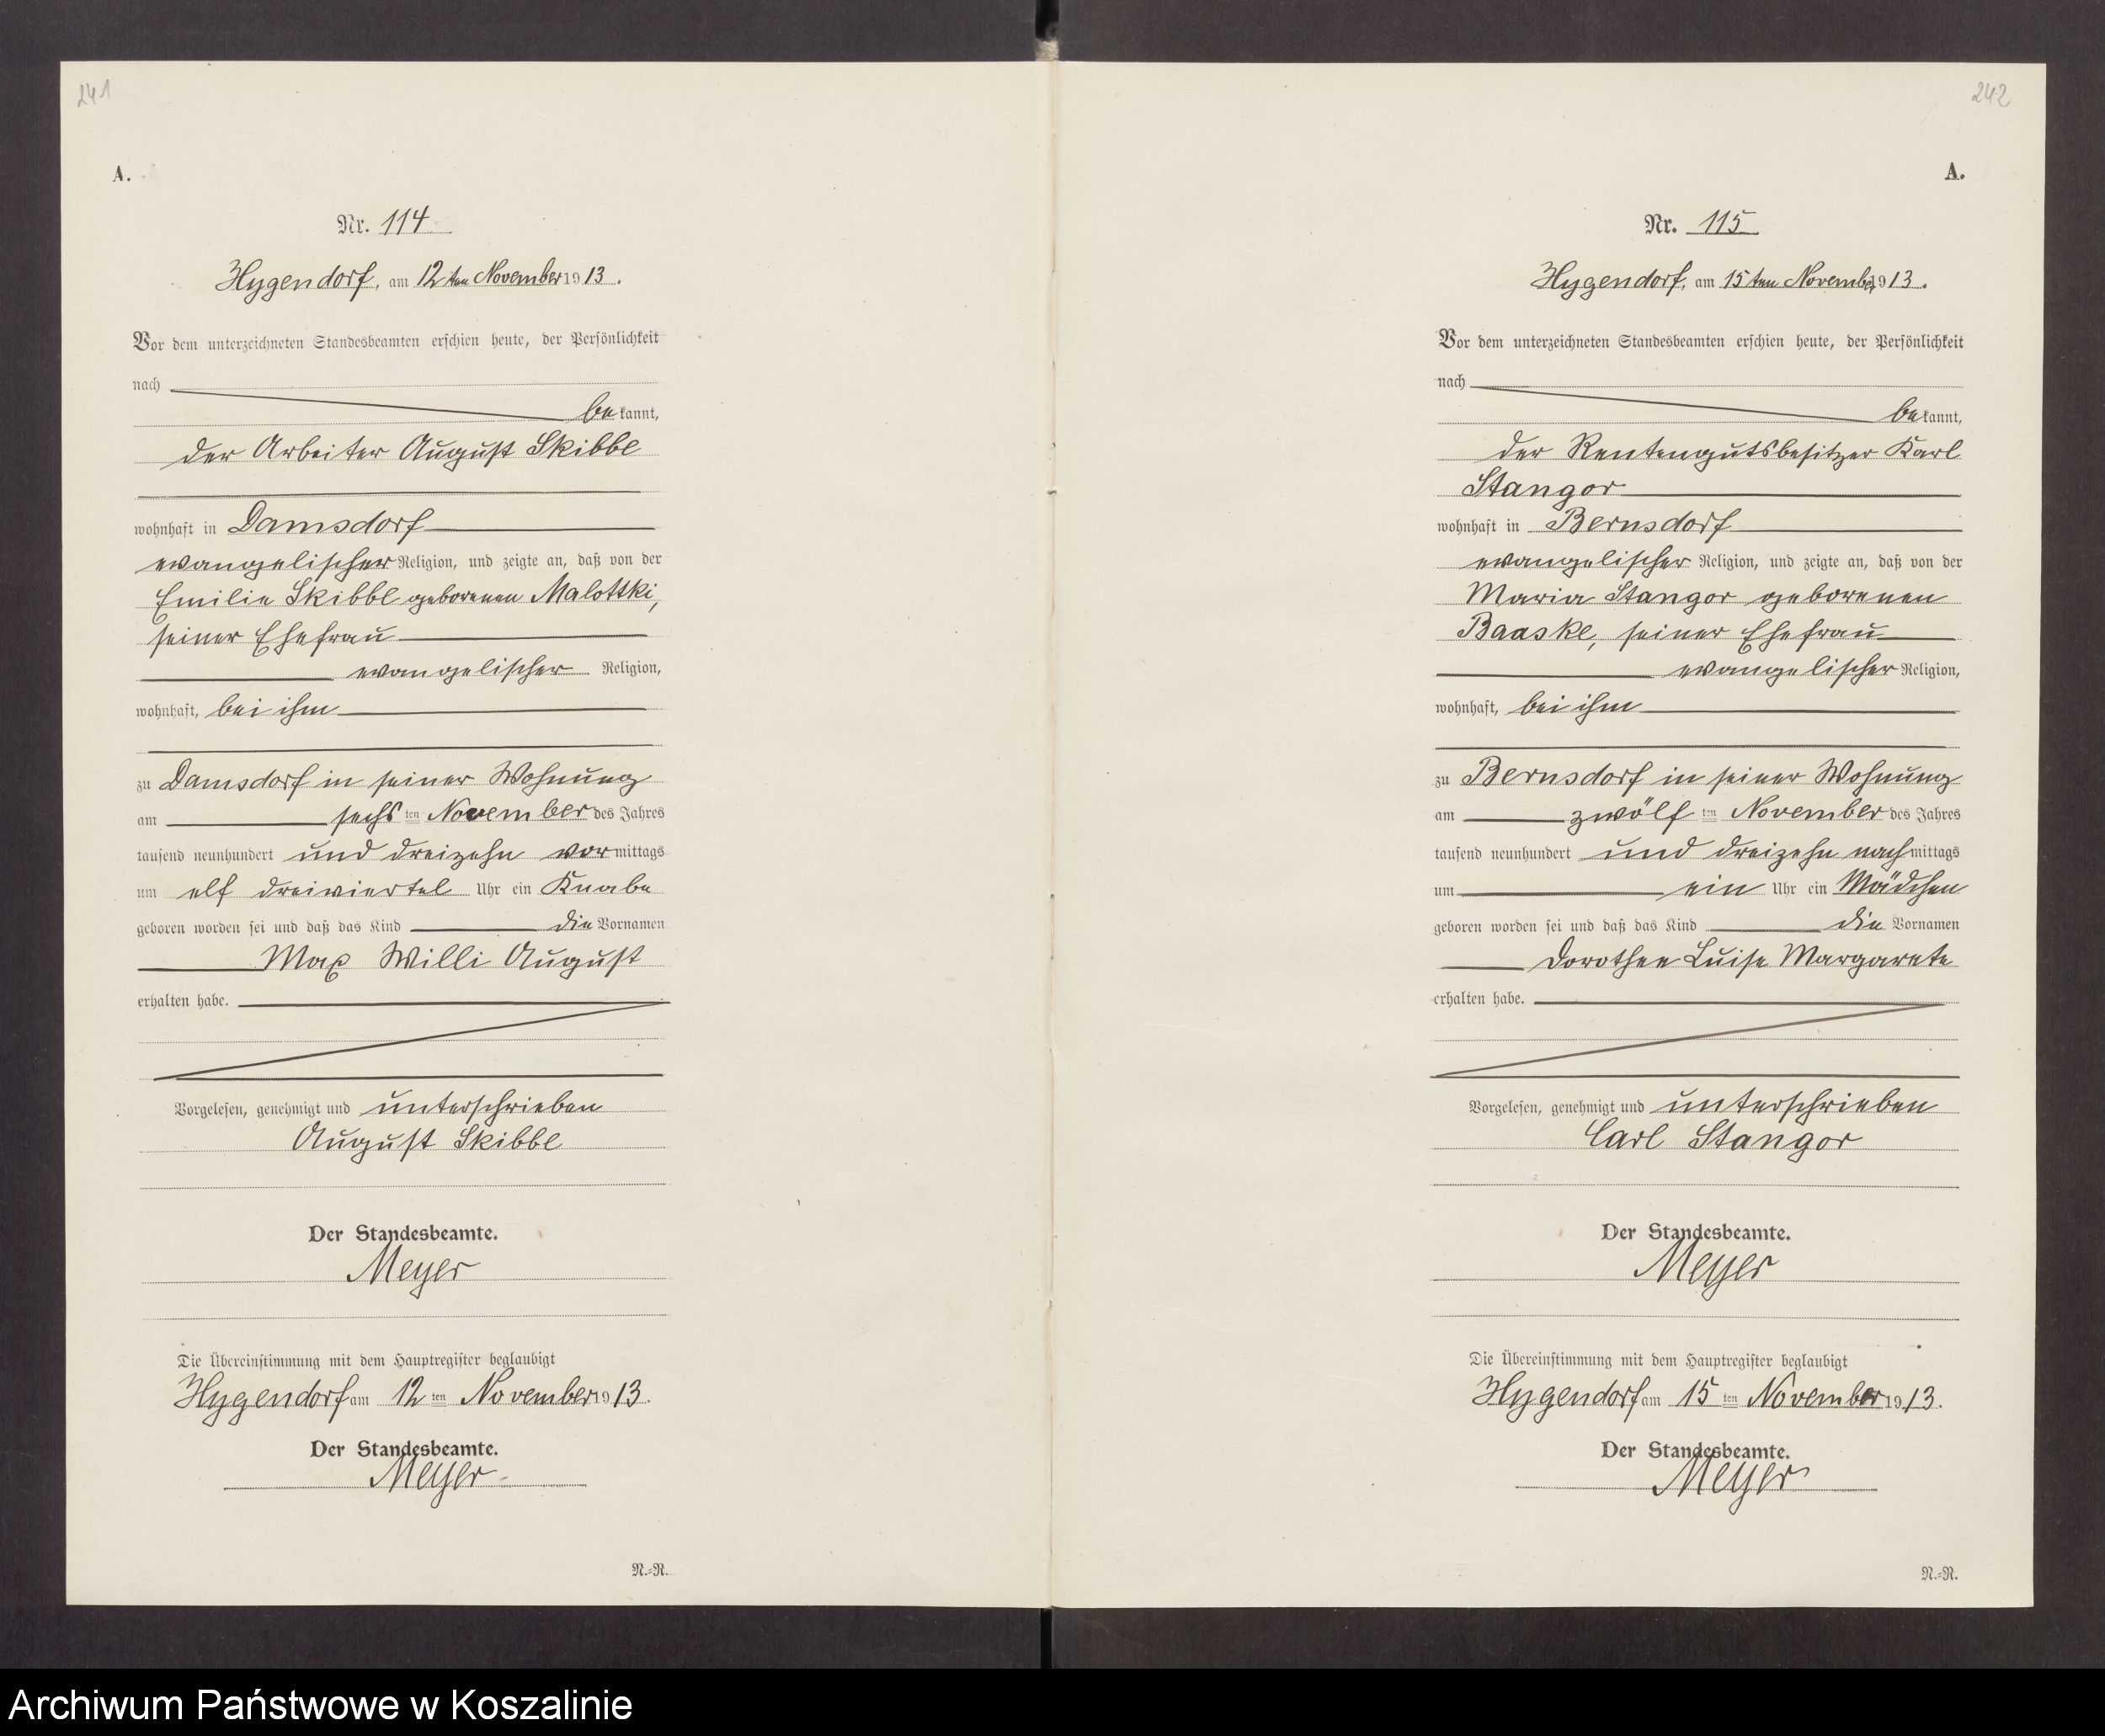 241
A.
Nr. 114
Hygendorf, am 12ten November 1913.
Vor dem unterzeichneten Standesbeamten erschien heute, der Persönlichkeit
nach
bekannt,
der Arbeiter August Skibbe
wohnhaft in Damsdorf
evangelischer Religion, und zeigte an, daß von der
Emilie Skibbe geborenen Malottki,
seiner Ehefrau
evangelischer Religion,
wohnhaft, bei ihm
zu Damsdorf in seiner Wohnung
am sechs ten November des Jahres
tausend neunhundert und dreizehn vormittags
um elf dreiviertel Uhr ein Knabe
geboren worden sei und daß das Kind die Vornamen
Max Willi August
erhalten habe.
Vorgelesen, genehmigt und unterschrieben
August Skibbe
Der Standesbeamte.
Meyer
Die Übereinstimmung mit dem Hauptregister beglaubigt
Hygendorf am 12 ten November 1913.
Der Standesbeamte.
Meyer
N.=R.
242
A.
Nr. 115
Hygendorf, am 15ten November 1913.
Vor dem unterzeichneten Standesbeamten erschien heute, der Persönlichkeit
nach
bekannt,
der Rentengutsbesitzer Karl
Stangor
wohnhaft in Bernsdorf
evangelischer Religion, und zeigte an, daß von der
Maria Stangor geborenen
Baaske, seiner Ehefrau
evangelischer Religion,
wohnhaft, bei ihm
zu Bernsdorf in seiner Wohnung
am zwölf ten November des Jahres
tausend neunhundert und dreizehn nachmittags
um ein Uhr ein Mädchen
geboren worden sei und daß das Kind die Vornamen
Dorothee Luise Margarete
erhalten habe.
Vorgelesen, genehmigt und unterschrieben
Carl Stangor
Der Standesbeamte.
Meyer
Die Übereinstimmung mit dem Hauptregister beglaubigt
Hygendorf am 15 ten November 1913.
Der Standesbeamte.
Meyer
N.=R.
Archiwum Państwowe w Koszalinie